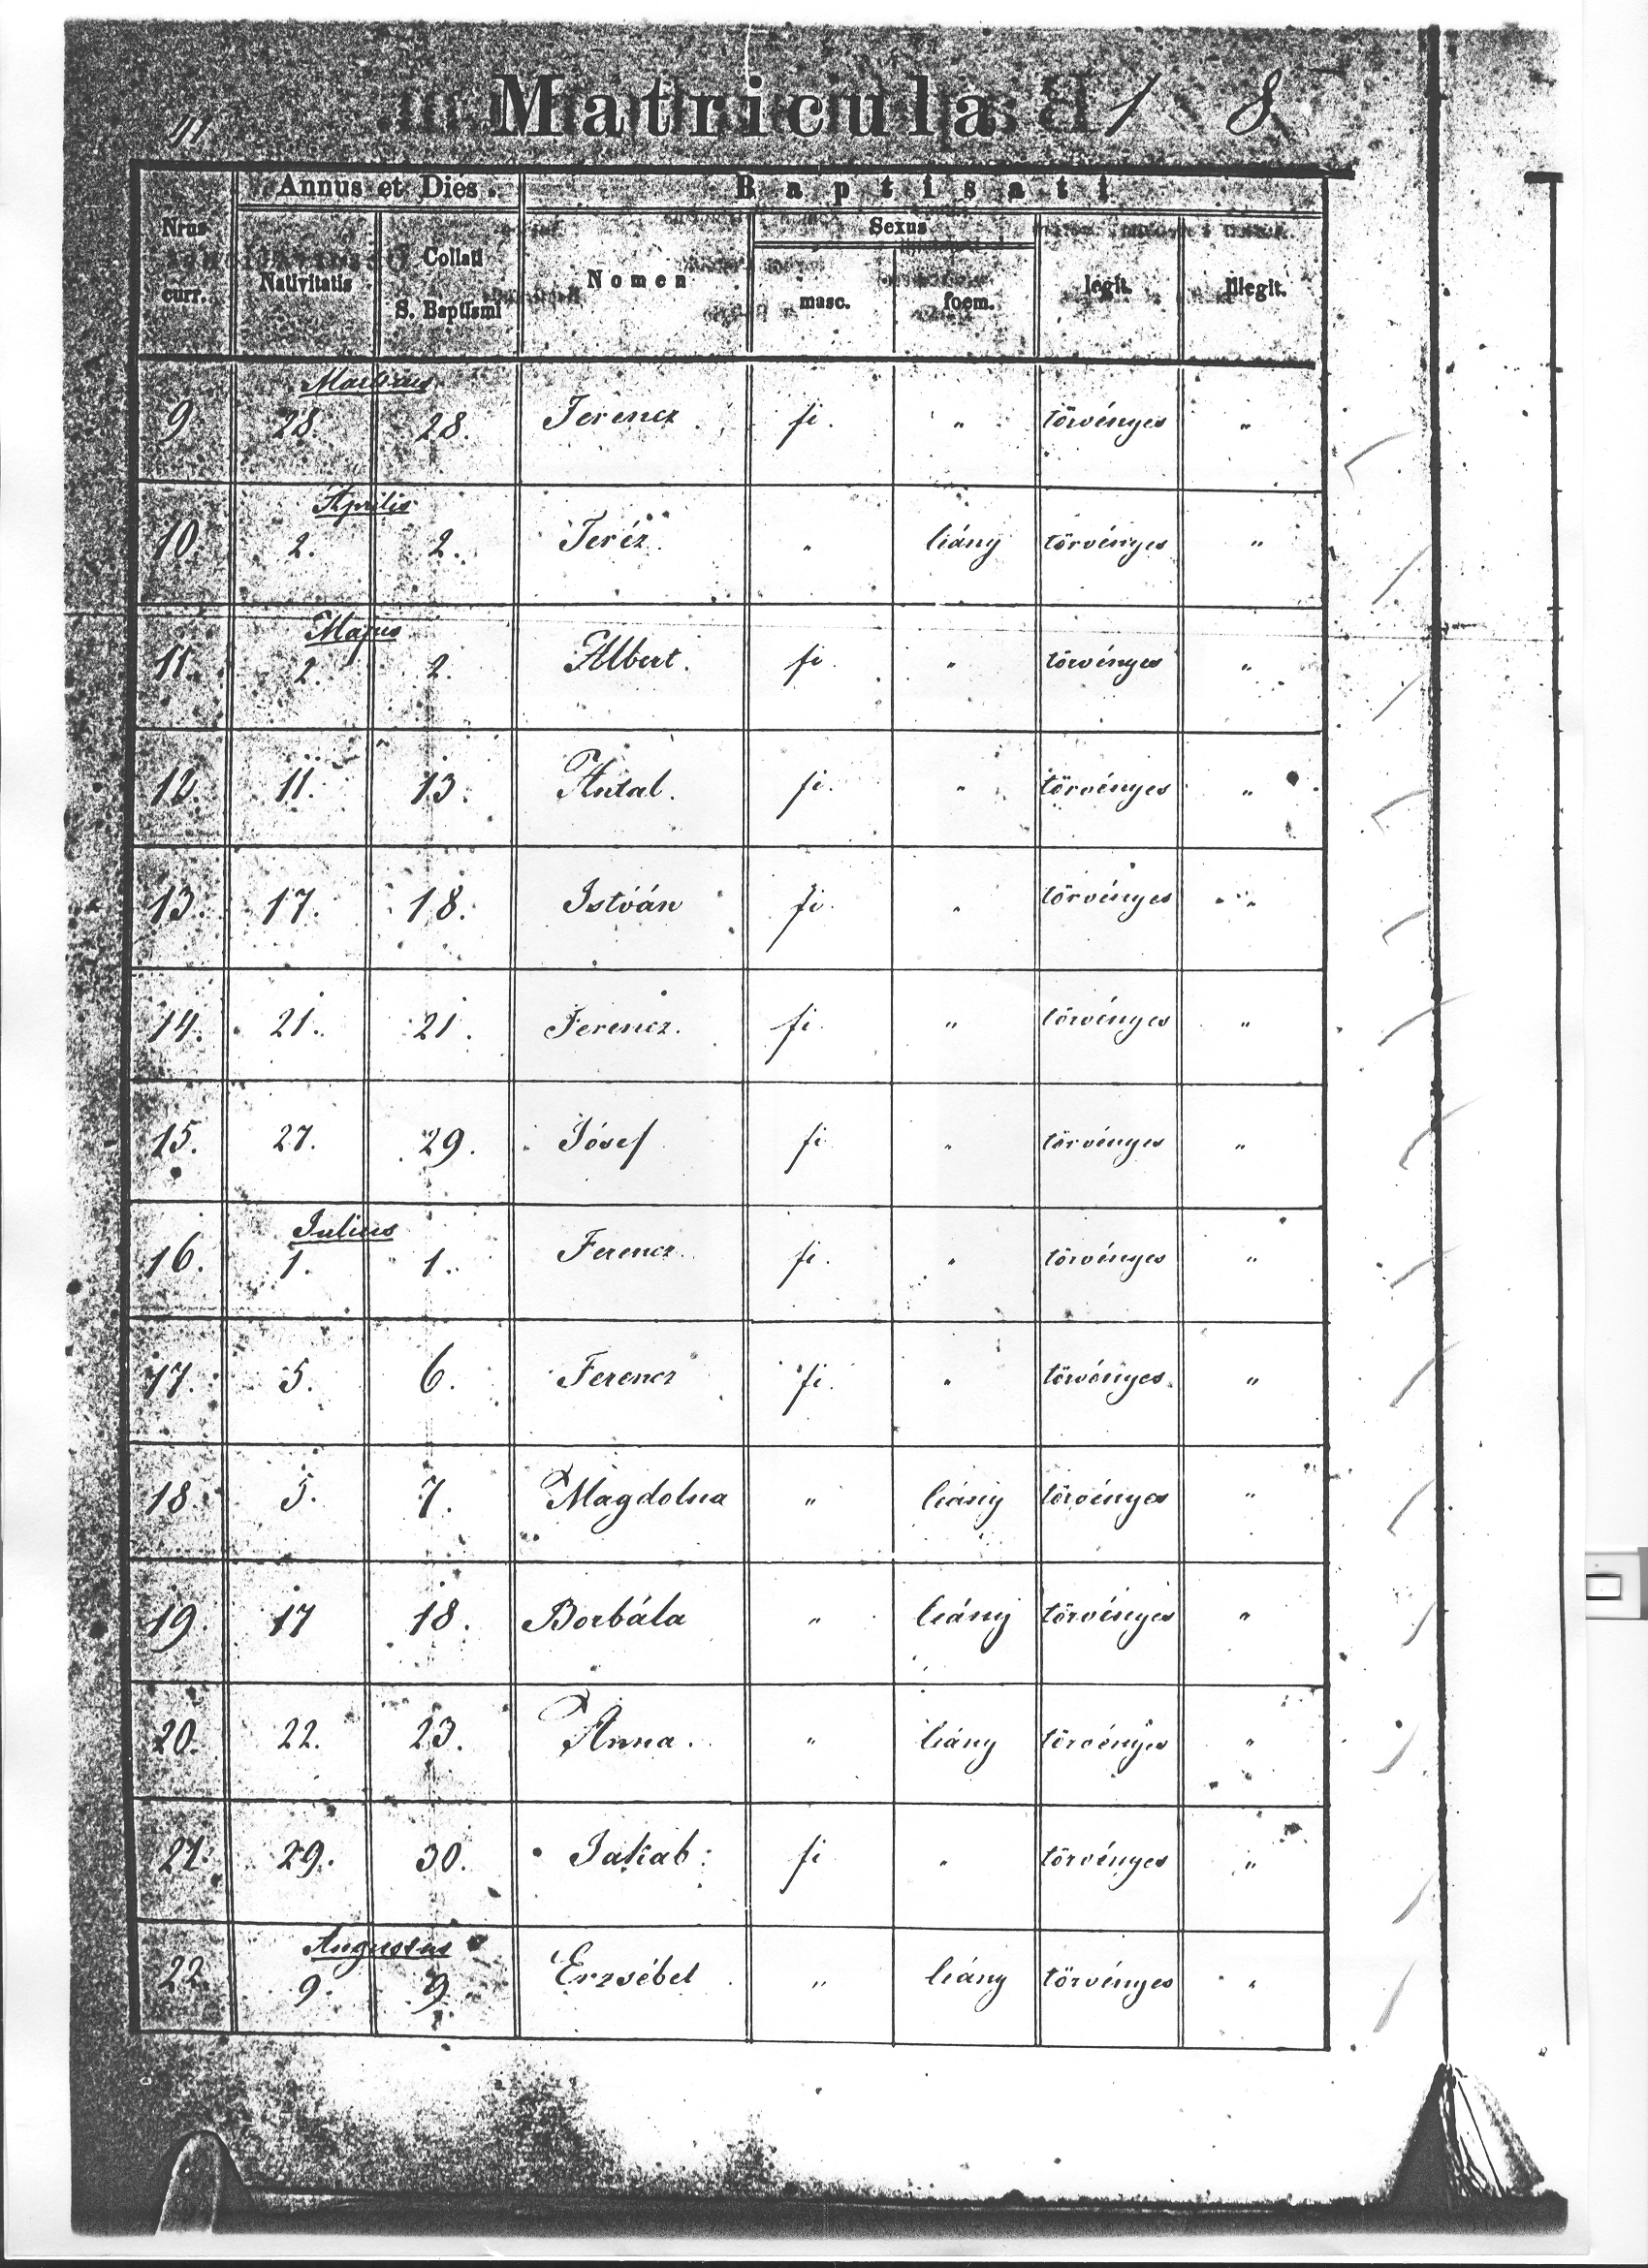 41 Matricula 1 8
Annus et Dies. Baptisati
Nrus curr. Nativitatis Collati S. Baptismi Nomen Sexus masc. foem. legit. illegit.
Martius
9 28. 28. Ferencz fi. " törvényes "
Aprilis
10. 2. 2. Teréz. " leány törvényes "
Majus
11. 2. 2. Albert. fi. " törvényes "
12. 11. 13. Antal. fi. " törvényes "
13. 17. 18. István fi. " törvényes "
14. 21. 21. Ferencz. fi. " törvényes "
15. 27. 29. Jósef fi " törvényes "
Julius
16. 1. 1. Ferencz. fi. " törvényes "
17. 5. 6. Ferencz fi. " törvényes "
18. 5. 7. Magdolna " leány törvényes "
19. 17 18. Borbála " leány törvényes "
20. 22. 23. Anna. " leány törvényes "
21. 29. 30. Jakab. fi " törvényes "
Augustus
22 9. 9. Erzsébet " leány törvényes "